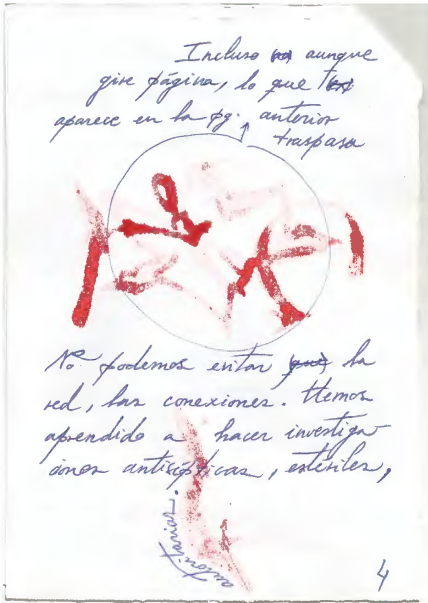 Incluso aunque
gire página, lo que
aparece en la pg. anterior
traspasa
No podemos evitar la
red, las conexiones. Hemos
aprendido a hacer investiga
ciones antisépticas, estériles,
autoritarias.
4